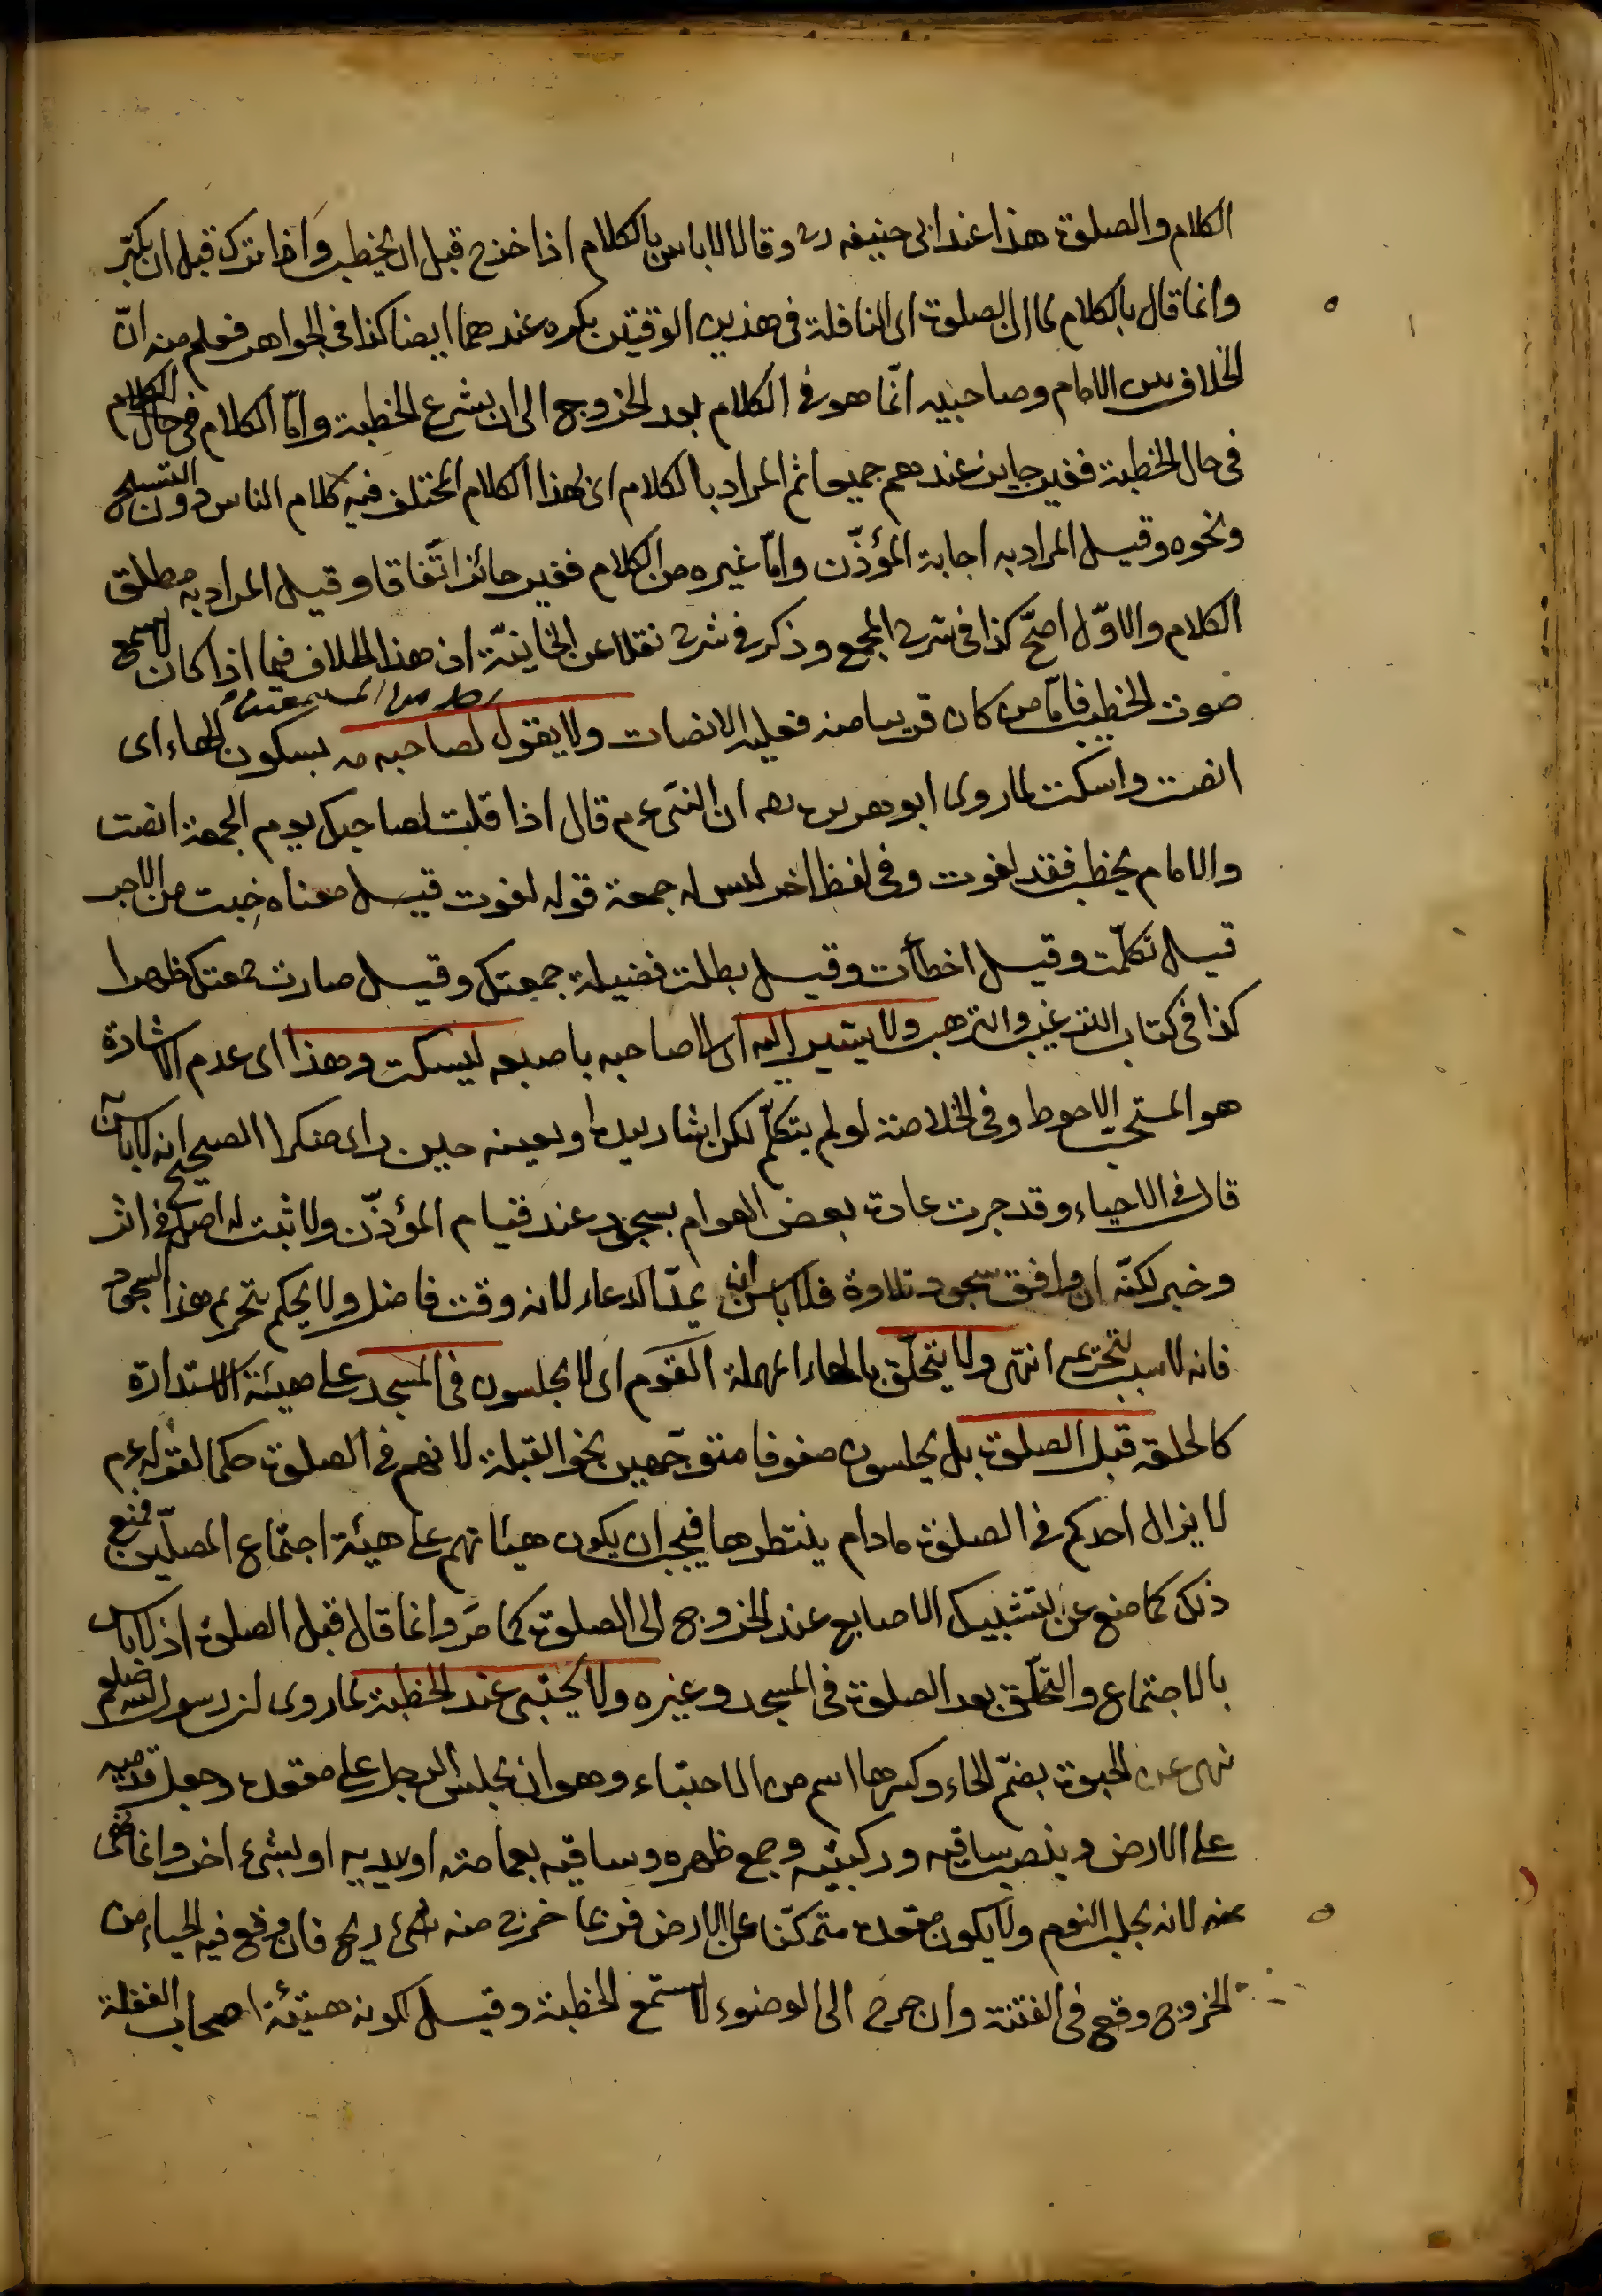 الكلام والصلوة هذا عند ابى حنيفه رح وقالا لا باس بالكلام اذا خرج قبل ان يخطب واذا نزل قبل ان يكبّر
وانما قال بالكلام لما ان الصلوة اى النافلة فى هذين الوقتين يكره عندهما ايضا كذا فى الجواهر فعلم منه انّ
الخلاف بين الامام وصاحبيه انّما هو فى الكلام بعد الخروج الى ان يشرع الخطبة وامّا الكلام فى حال الكلام
فى حال الخطبة فغير جايز عندهم جميعا ثم المراد بالكلام اى بهذا الكلام المختلف فيه كلام الناس دون التسبيح
ونحوه وقيل المراد به اجابة المؤذّن وامّا غيره من الكلام فغير جائز اتّفاقا وقيل المراد به مطلق
الكلام والاوّل اصحّ كذا فى شرح المجمع وذكر فى شرح نقلا عن الخانيّة ان هذا الخلاف فيما اذا كان لا يسمع
صوت الخطيب فامّا من كان قريبا منه فعليه الانصات ولا يقول لصاحبه مه بسكون الهاء اى
انصت واسكت لما روى ابو هريرة رضه ان النبى عم قال اذا قلت لصاحبك يوم الجمعة انصت
والامام يخطب فقد لغوت وفى لفظ اخر ليس له جمعة قوله لغوت قيل معناه خِبت من الاجر
قيل تكلّمت وقيل اخطأت وقيل بطلت فضيلة جمعتك وقيل صارت جمعتك ظهرا
كذا فى كتاب الترغيب والترهيب ولا يشير اليه اى الى صاحبه باصبعه ليسكت وهذا اى عدم الاشارة
هو المستحب الاحوط وفى الخلاصة لو لم يتكلّم لكن اشار بيده او بعينه حين راى منكرا الصحيح انه لا باس به
قال فى الاحياء وقد جرت عادة بعض العوام بسجود عند قيام المؤذّن ولا ثبت له اصل فى اثر
وخبر لكنّه ان وافق سجود تلاوة فلا باس ان يمدّ الدعاء لانه وقت فاضل ولا يحكم بتحريم هذا السجود
فانه لا سبب لتحريمه انتهى ولا يتحلّق بالحاء المهملة القوم اى لا يجلسون فى المسجد على هيئة الاستدارة
كالحلقه قبل الصلوة بل يجلسون صفوفا متوجّهين نحو القبلة لانهم فى الصلوة حكما لقوله عم
لا يزال احدكم فى الصلوة ما دام ينتظرها فيجب ان يكون هيئاتهم على هيئة اجتماع المصلّين فمنع
ذلك كما منع عن تشبيك الاصابع عند الخروج الى الصلوة كما مَر وانما قال قبل الصلوة اذ لا باس
بالاجتماع والتحلّق بعد الصلوة فى المسجد وغيره ولا يحتبى عند الخطبة لما روى ان رسول الله صلعم
نهى عن الحبوة بضمّ الحاء وكسرها اسم من الاحتباء وهو ان يجلس الرجل على مقعده وجعل قدميه
على الارض وينصب ساقيه وركبتيه وجمع ظهره وساقيه بعمامته او بيديه او بشئ اخر وانما نهى
عنه لانه يجلب النوم ولا يكون مقعده متمكّنا على الارض فربما خرج منه شئ ريح فان وقع فيه الحياء من
الخروج وقع فى الفتنة وان خرج الى الوضوء لا يستمع الخطبة وقيل لكونه هيئة اصحاب الغفلة